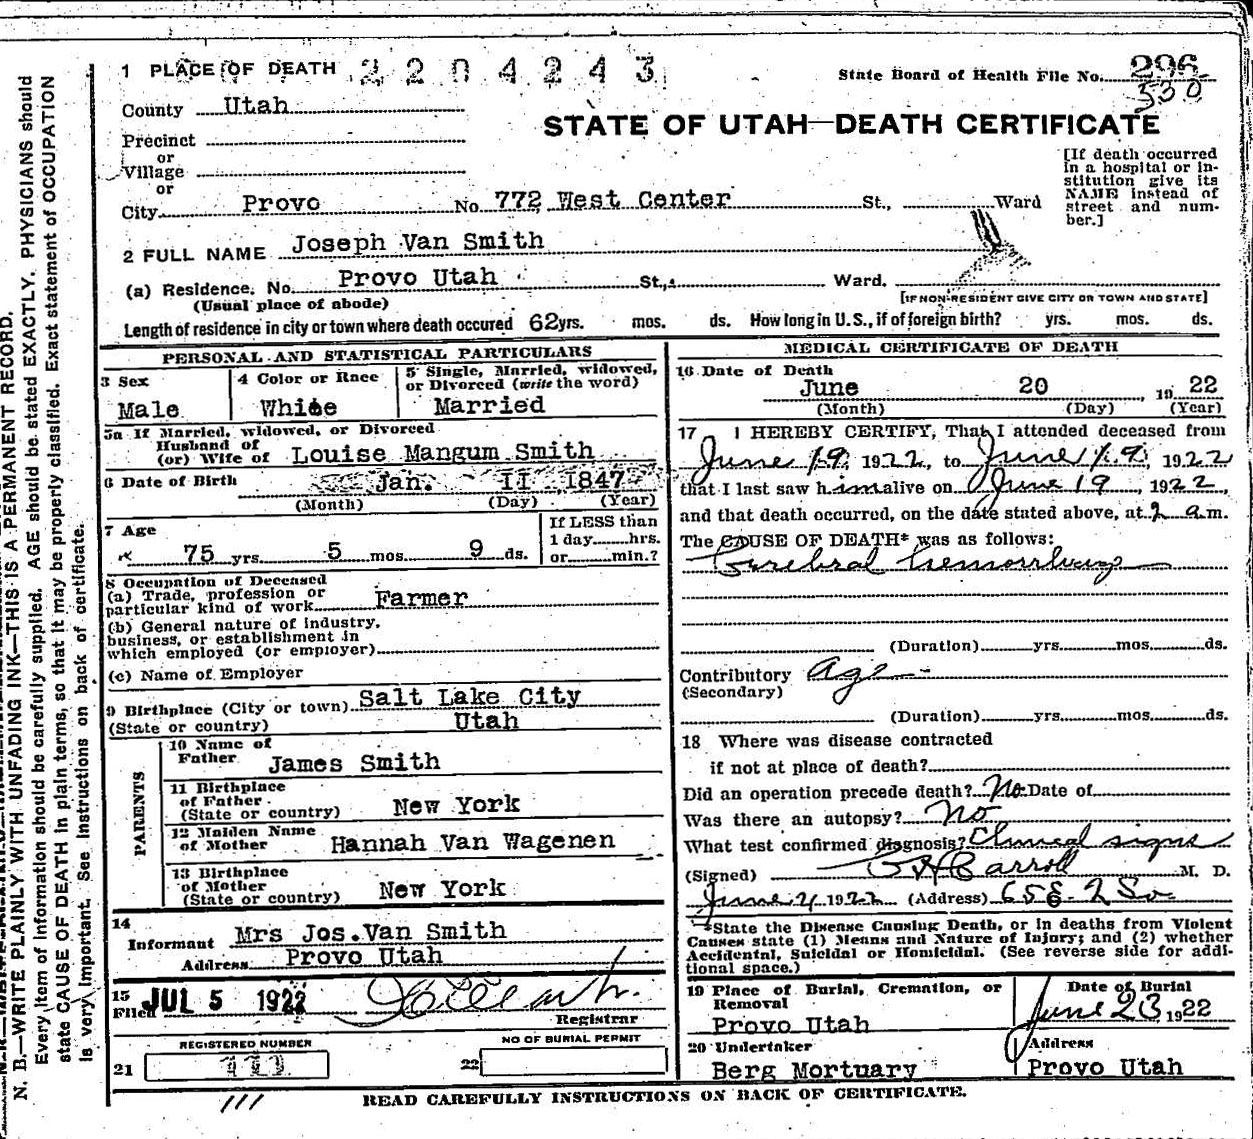 1 PLACE OF DEATH 2204243
State Board of Health File No. 296
530
County Utah
STATE OF UTAH—DEATH CERTIFICATE
Precinct
or
Village
or
City Provo No. 772 West Center St., Ward
[If death occurred in a hospital or in-
stitution give its
NAME instead of
street and num-
ber.]
2 FULL NAME Joseph Van Smith
(a) Residence. No. Provo Utah St., Ward.
(Usual place of abode) [IF NON-RESIDENT GIVE CITY OR TOWN AND STATE]
Length of residence in city or town where death occured 62 yrs. mos. ds. How long in U.S., if of foreign birth? yrs. mos. ds.
PERSONAL AND STATISTICAL PARTICULARS
3 Sex
Male
4 Color or Race
White
5 Single, Married, widowed,
or Divorced (write the word)
Married
5a If Married, widowed, or Divorced
Husband of
(or) Wife of Louise Mangum Smith
6 Date of Birth Jan. II 1847
(Month) (Day) (Year)
7 Age
75 yrs. 5 mos. 9 ds.
If LESS than
1 day......hrs.
or......min.?
8 Occupation of Deceased
(a) Trade, profession or
particular kind of work Farmer
(b) General nature of industry,
business, or establishment in
which employed (or employer)
(c) Name of Employer
9 Birthplace (City or town) Salt Lake City
(State or country) Utah
PARENTS
10 Name of
Father James Smith
11 Birthplace
of Father
(State or country) New York
12 Maiden Name
of Mother Hannah Van Wagenen
13 Birthplace
of Mother
(State or country) New York
14
Informant Mrs Jos. Van Smith
Address Provo Utah
15
Filed JUL 5 1922
Registrar
REGISTERED NUMBER
21 111
NO OF BURIAL PERMIT
22
111
MEDICAL CERTIFICATE OF DEATH
16 Date of Death
June 20, 1922
(Month) (Day) (Year)
17 I HEREBY CERTIFY, That I attended deceased from
June 19, 1922, to June 19, 1922
that I last saw him alive on June 19, 1922,
and that death occurred, on the date stated above, at 2 a.m.
The CAUSE OF DEATH* was as follows:
Cerebral hemorrhage
(Duration) yrs. mos. ds.
Contributory Age
(Secondary)
(Duration) yrs. mos. ds.
18 Where was disease contracted
if not at place of death?
Did an operation precede death? No Date of
Was there an autopsy? No
What test confirmed diagnosis? Clinical signs
(Signed) Carroll M. D.
June 21 1922 (Address) 65 E. 2 So
*State the Disease Causing Death, or in deaths from Violent
Causes state (1) Means and Nature of Injury; and (2) whether
Accidental, Suicidal or Homicidal. (See reverse side for addi-
tional space.)
19 Place of Burial, Cremation, or
Removal
Provo Utah
Date of Burial
June 23, 1922
20 Undertaker
Berg Mortuary
Address
Provo Utah
READ CAREFULLY INSTRUCTIONS ON BACK OF CERTIFICATE.
N. B.—WRITE PLAINLY WITH UNFADING INK—THIS IS A PERMANENT RECORD.
Every item of information should be carefully supplied. AGE should be stated EXACTLY. PHYSICIANS should
state CAUSE OF DEATH in plain terms, so that it may be properly classified. Exact statement of OCCUPATION
is very important. See Instructions on back of certificate.